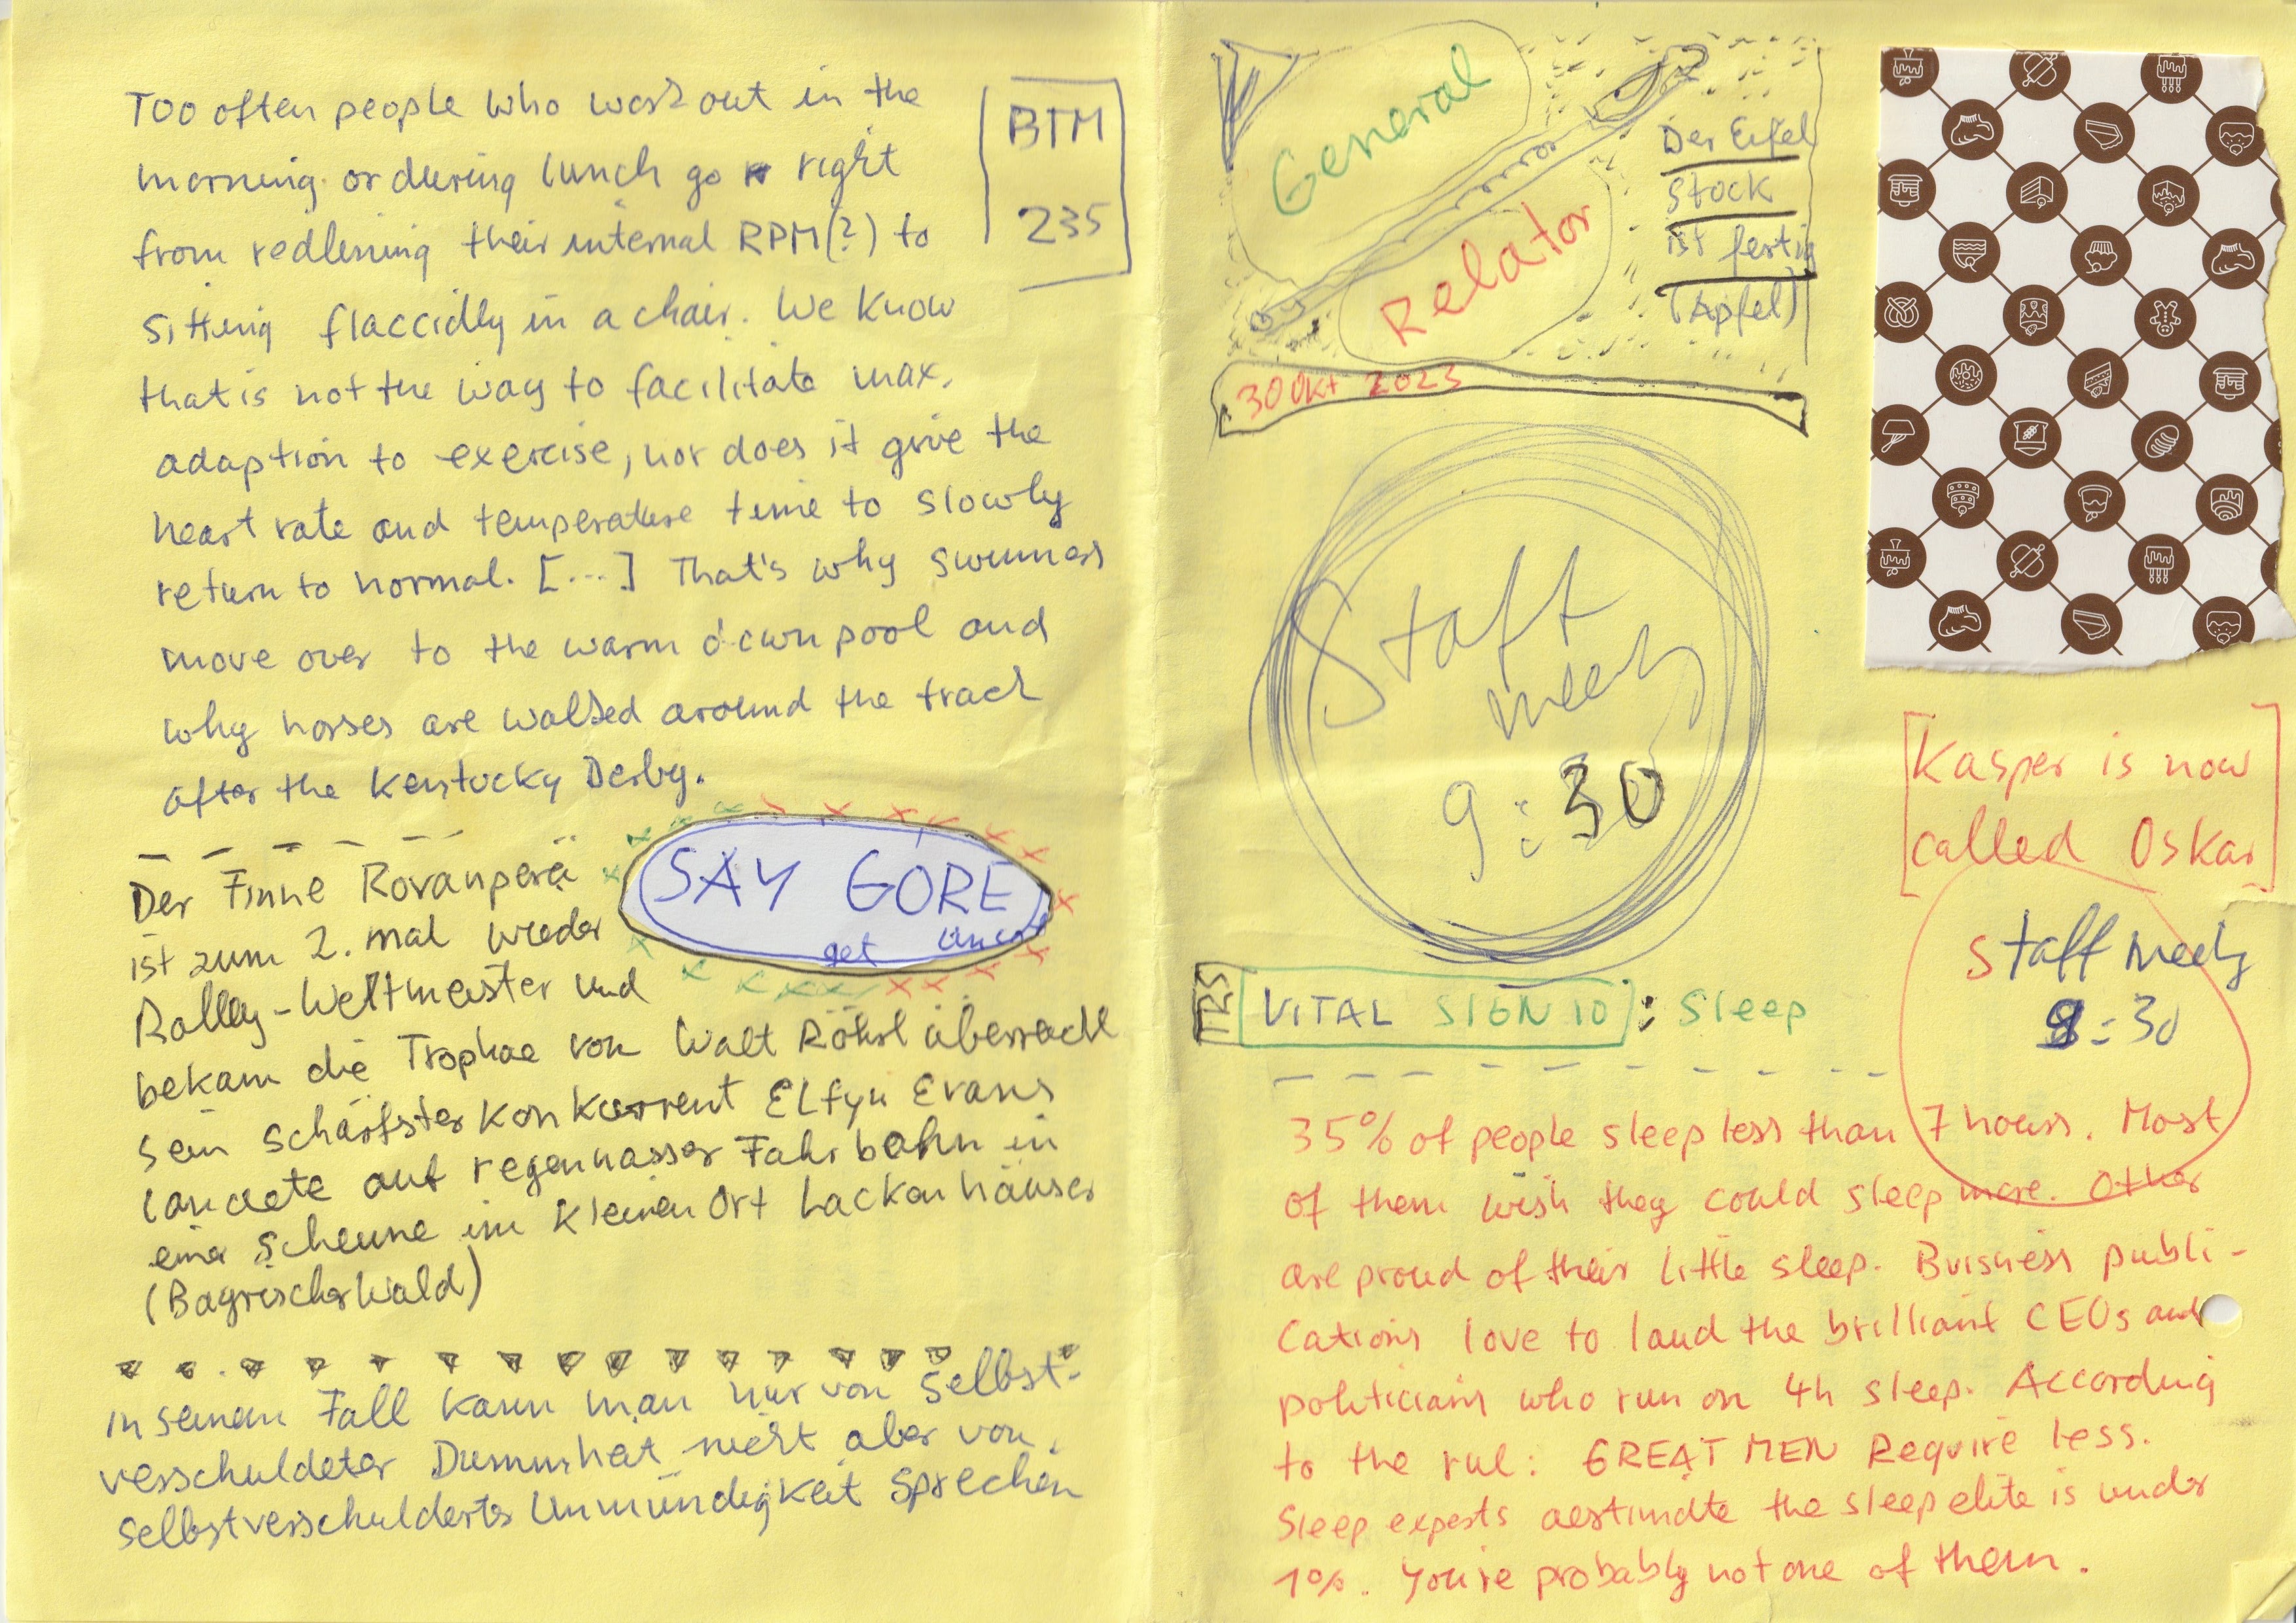 Too often people who work out in the
morning or during lunch go right
from redlining their internal RPM(?) to
sitting flaccidly in a chair. We know
that is not the way to facilitate max.
adaption to exercise, nor does it give the
heart rate and temperature time to slowly
return to normal. [...] That's why swimmers
move over to the warm down pool and
why horses are walked around the track
after the Kentucky Derby.
BTM
235
SAY GORE
get
Der Finne Rovanperä
ist zum 2. mal wieder
Ralley-Weltmeister und
bekam die Trophae von Walt Röhrl überreicht
sein schärfster Konkurrent Elfyn Evans
landete auf regennasser Fahrbahn in
einer Scheune im kleinen Ort Lackenhäuser
(Bayrischer Wald)
In seinem Fall kann man nur von Selbst-
verschuldeter Dummheit nicht aber von
selbstverschuldeter Unmündigkeit sprechen
General
Relator
Der Eifel
Stock
ist fertig
(Apfel)
30 Okt 2023
Staff
meety
9:30
[Kasper is now
called Oskar]
Staff meety
9:30
TRS
VITAL SIGN 10: Sleep
35% of people sleep less than 7 hours. Most
of them wish they could sleep more. Other
are proud of their little sleep. Buisness publi-
cations love to laud the brilliant CEOs and
politicians who run on 4h sleep. According
to the rul: GREAT MEN Require less.
Sleep experts aestimate the sleep elite is under
1%. You're probably not one of them.